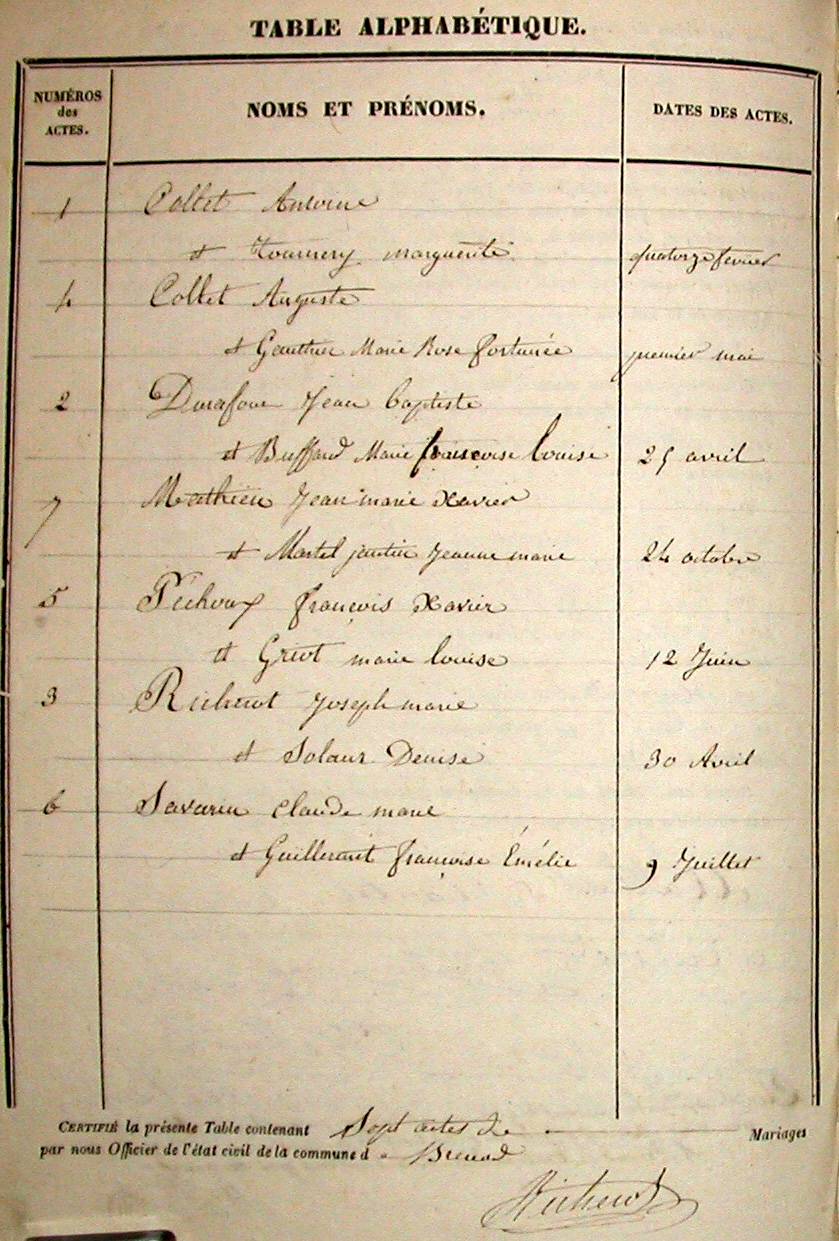 TABLE ALPHABÉTIQUE.
NUMÉROS des ACTES.
NOMS ET PRÉNOMS.
DATES DES ACTES.
1 Collet Antoine
et Tournery marguerite quatorze fevrier
4 Collet Auguste
et Gauthier Marie Rose fortunée premier mai
2 Durafour Jean baptiste
et Buffard Marie francoise louise 25 avril
7 Mathieu Jean marie Xavier
et Martel Jeanne marie 24 octobre
5 françois Xavier
et Griot marie louise 12 Juin
3 Richerot Joseph marie
et Solaur Denise 30 Avril
6 Savarin claude marie
et Guillermit françoise Émélie 9 Juillet
CERTIFIÉ la présente Table contenant Sept actes de Mariages
par nous Officier de l'état civil de la commune d e Brenod
Richerot